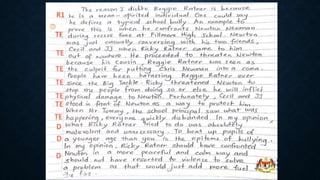 The reason I dislike Reggie Ratner is because
RI he is a mean-spirited individual. One could say
he defines a typical school bully. An example to
prove this is when he confronts Newton Newman
TE during recess time at Fillmore High School. Newton
was just casually conversing with his two friends,
Cecil and JJ when Ricky Ratner came to him
TE Out of nowhere. He proceeded to threaten Newton
because his cousin, Reggie Ratner was seen as
TE the culprit for putting Chris Newman into a coma.
People have been harassing Reggie Ratner ever
TE since the Big Tackle. Ricky threatened Newton to
stop the people from doing so or else he will inflict
TE physical damage to Newton. Fortunately, Cecil and JJ
TE stood in front of Newton as a way to protect him.
When Mr Tommy, the school principal saw what was
TE happening, everyone quickly disbanded. In my opinion,
D what Ricky Ratner tried to do was absolutely
D malevolent and unnecessary. To beat up pupils of
D a younger age than you is the epitome of bullying.
In my opinion, Ricky Ratner should have confronted
D Newton in a more peaceful and calm way and
should not have resorted to violence to solve
a problem as that would just add more fuel